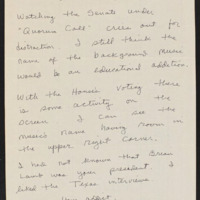 Watching the Senate under
"Quorum Call" cries out for
distraction. I still think the
name of the background music
would be an educational addition.
With the House's voting there
is some activity on the
screen. I can see the
music's name having room in
the upper right corner.
I had not known that Brian
Lamb was your president. I
liked the Texas interviews.